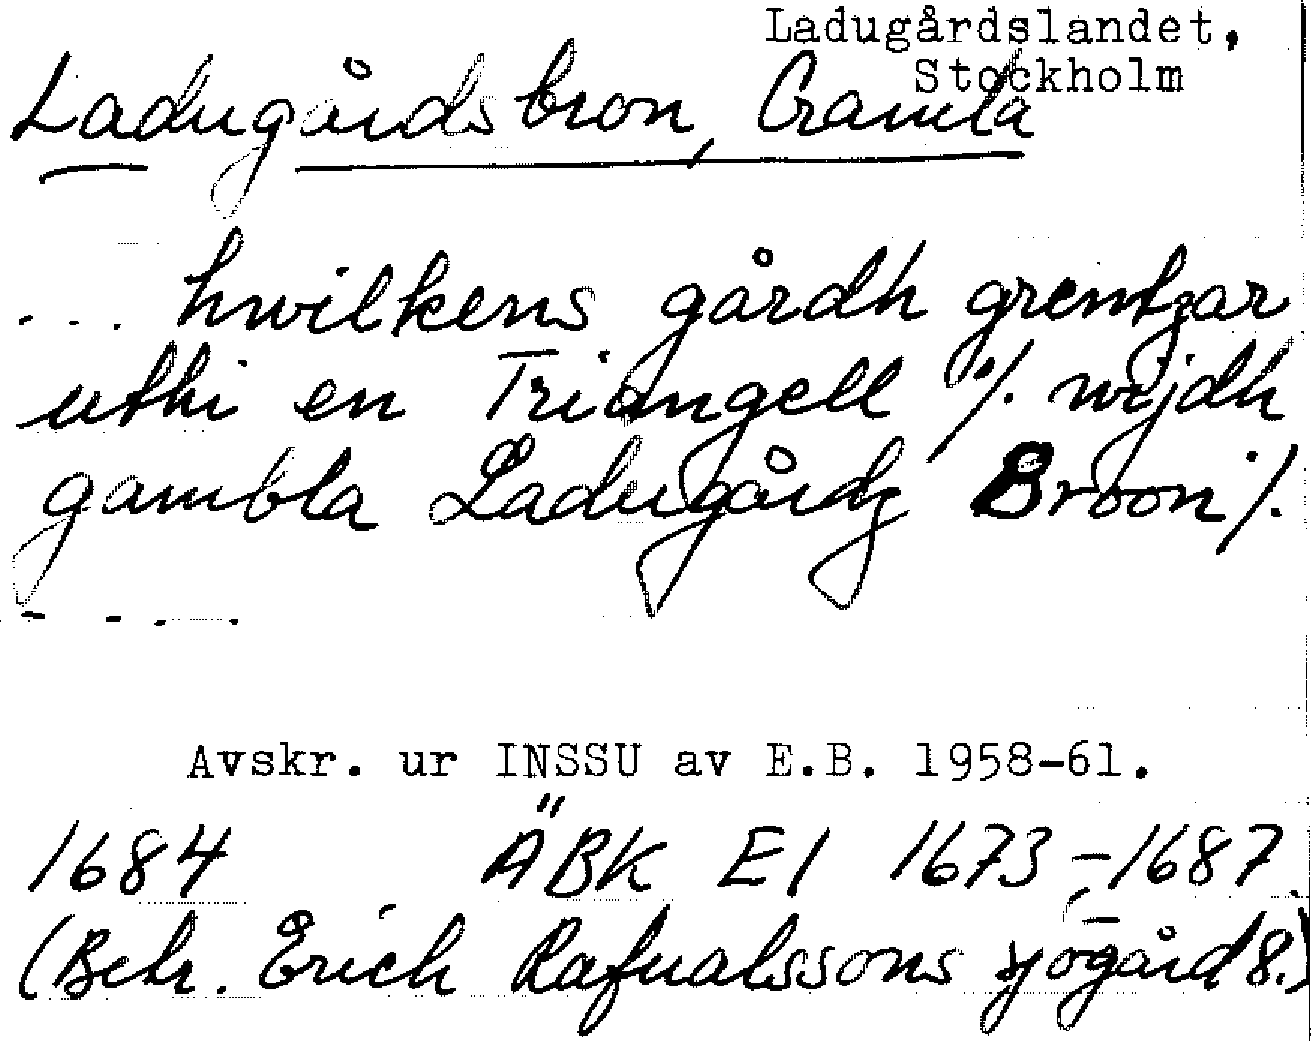 Ladugårdslandet,
Stockholm
Ladugårdsbron, Gamla
... hwilkens gårdh grentzar
uthi en Triangell ·/. wijdh
gambla Ladugårdz Broon ·/.
- - - -
Avskr. ur INSSU av E.B. 1958-61.
1684 ÄBK E1 1673-1687
(Betr. Erich Rafualssons sjögård 8.)